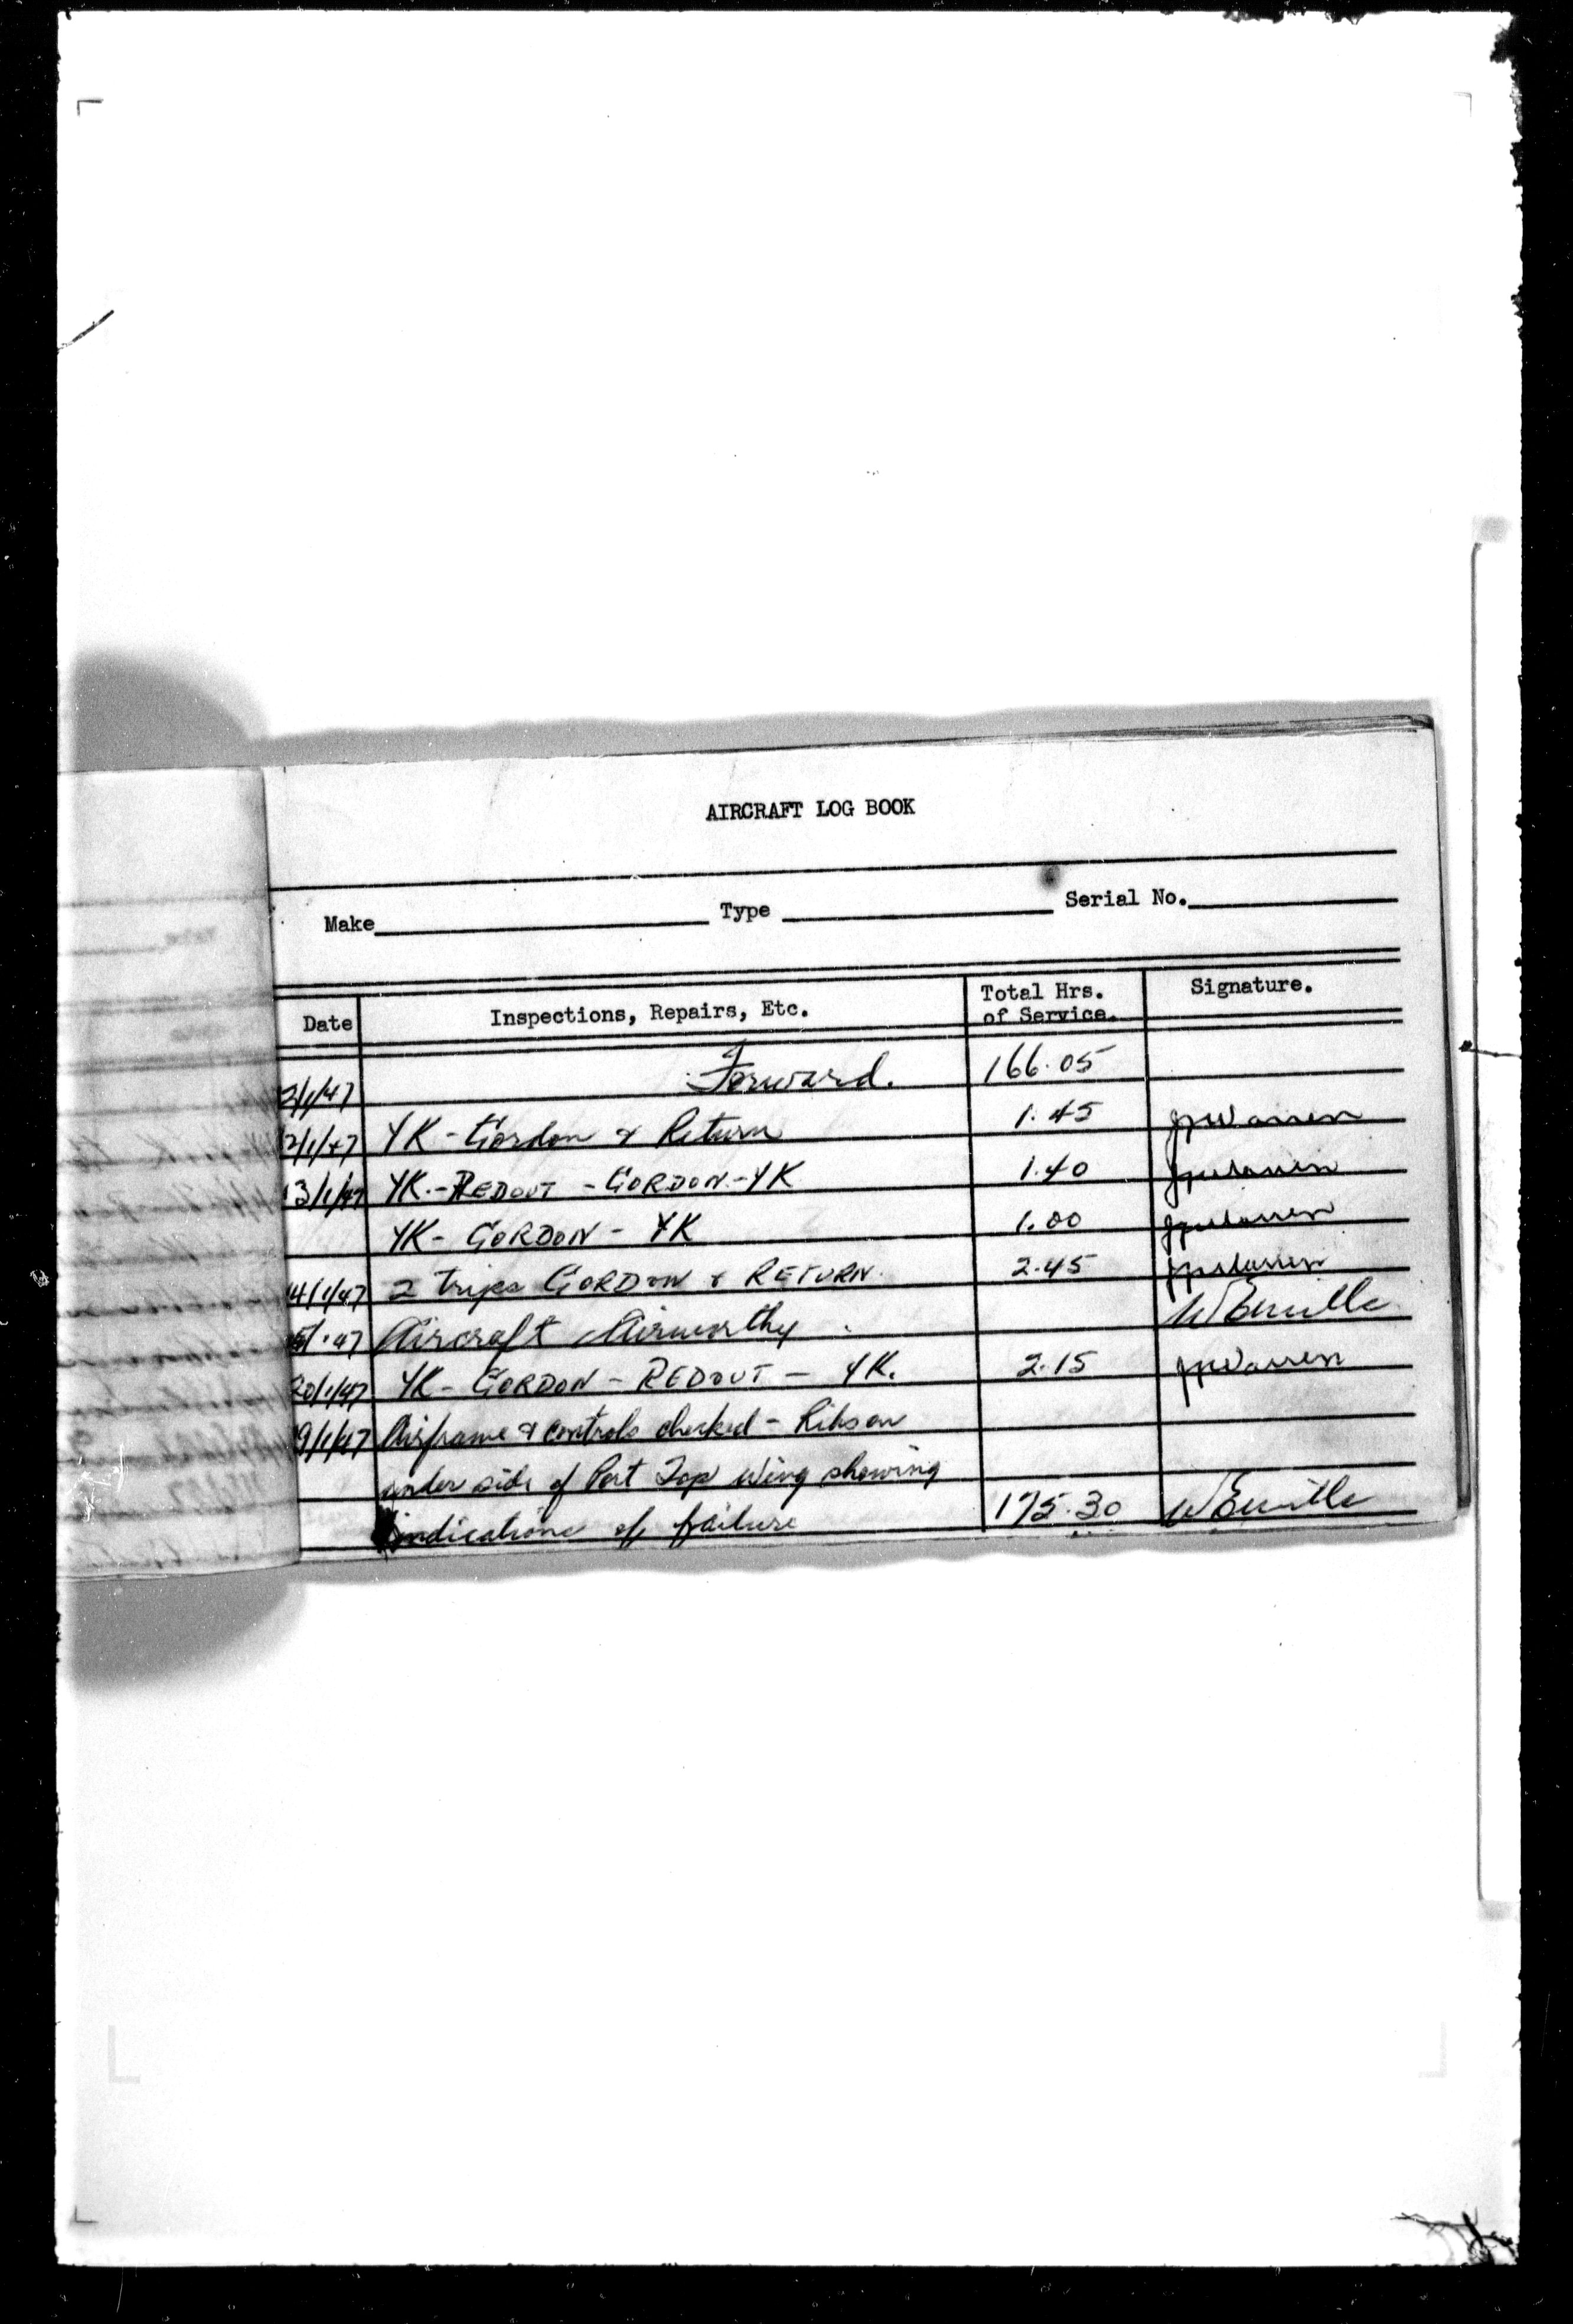 AIRCRAFT LOG BOOK
Make Type Serial No.
Date Inspections, Repairs, Etc. Total Hrs. of Service. Signature.
2/1/47 Forward. 166.05
12/1/47 YK - Gordon & Return 1.45 JpWarren
13/1/47 YK.-REDOUT - GORDON.-YK 1.40 JpWarren
YK- GORDON - YK 1.00 JpWarren
14/1/47 2 trips GORDON & RETURN. 2.45 JpWarren
47 Aircraft Airworthy.
20/1/47 YK - GORDON - REDOUT - YK. 2.15 JpWarren
9/1/47 Airframe & controls checked - Ribs on
under side of Port Top Wing showing
indications of failure 175.30